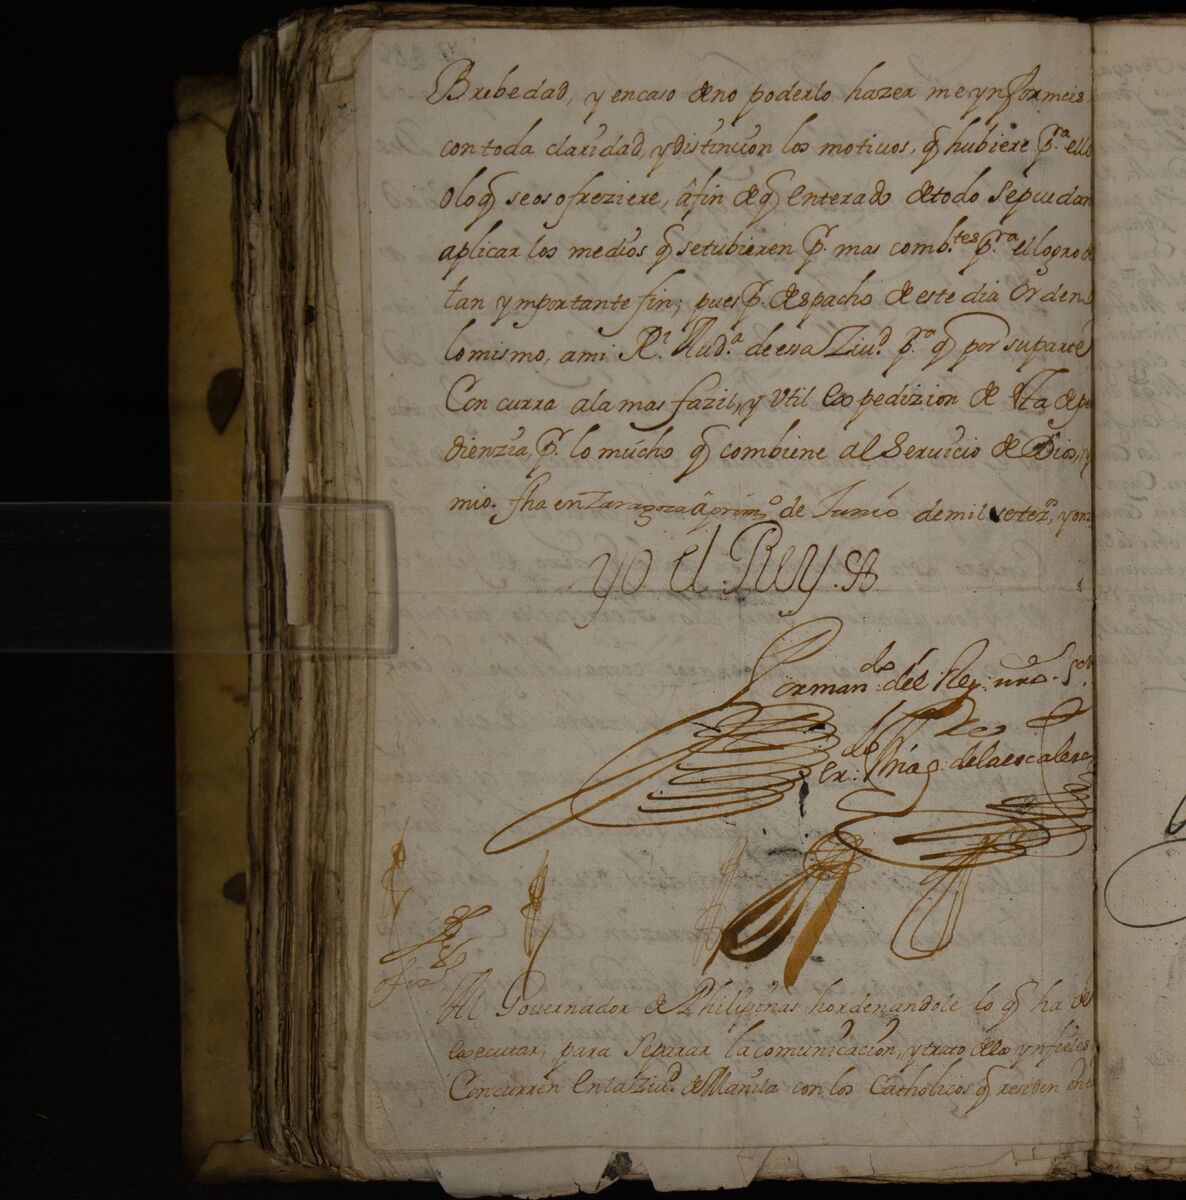 Brebedad, y encaso deno poderlo hazer me ynformeis
con toda claridad, y distinçion los motiuos, q hubiere pra ello
olo q seosofreziere, â fin de q enterado detodo sepuedan
aplicar los medios q setubieren pr. mas combtes pra el logro de
tan ymportante fin; pues pr. despacho de este dia Ordeno
lo mismo, ami Rl. Auda de esa Ziud. pra q por suparte
Concurra ala mas fazil, y Vtil expedizion de sta depen
dienzia, pr. lo mucho q combiene al Seruicio de Dios, y
mio. fha en Zaragoza â primo de Junio demil setezos, y onze
yo el Rey.
Pormando del Rey nro. Sor
de la escalera
Al Gouernador de Philipinas hordenandole lo q ha de
executar, para separar la comunicacion, y trato delos ynfieles
Concurren en la Ziud. de Manila con los Catholicos q residen en